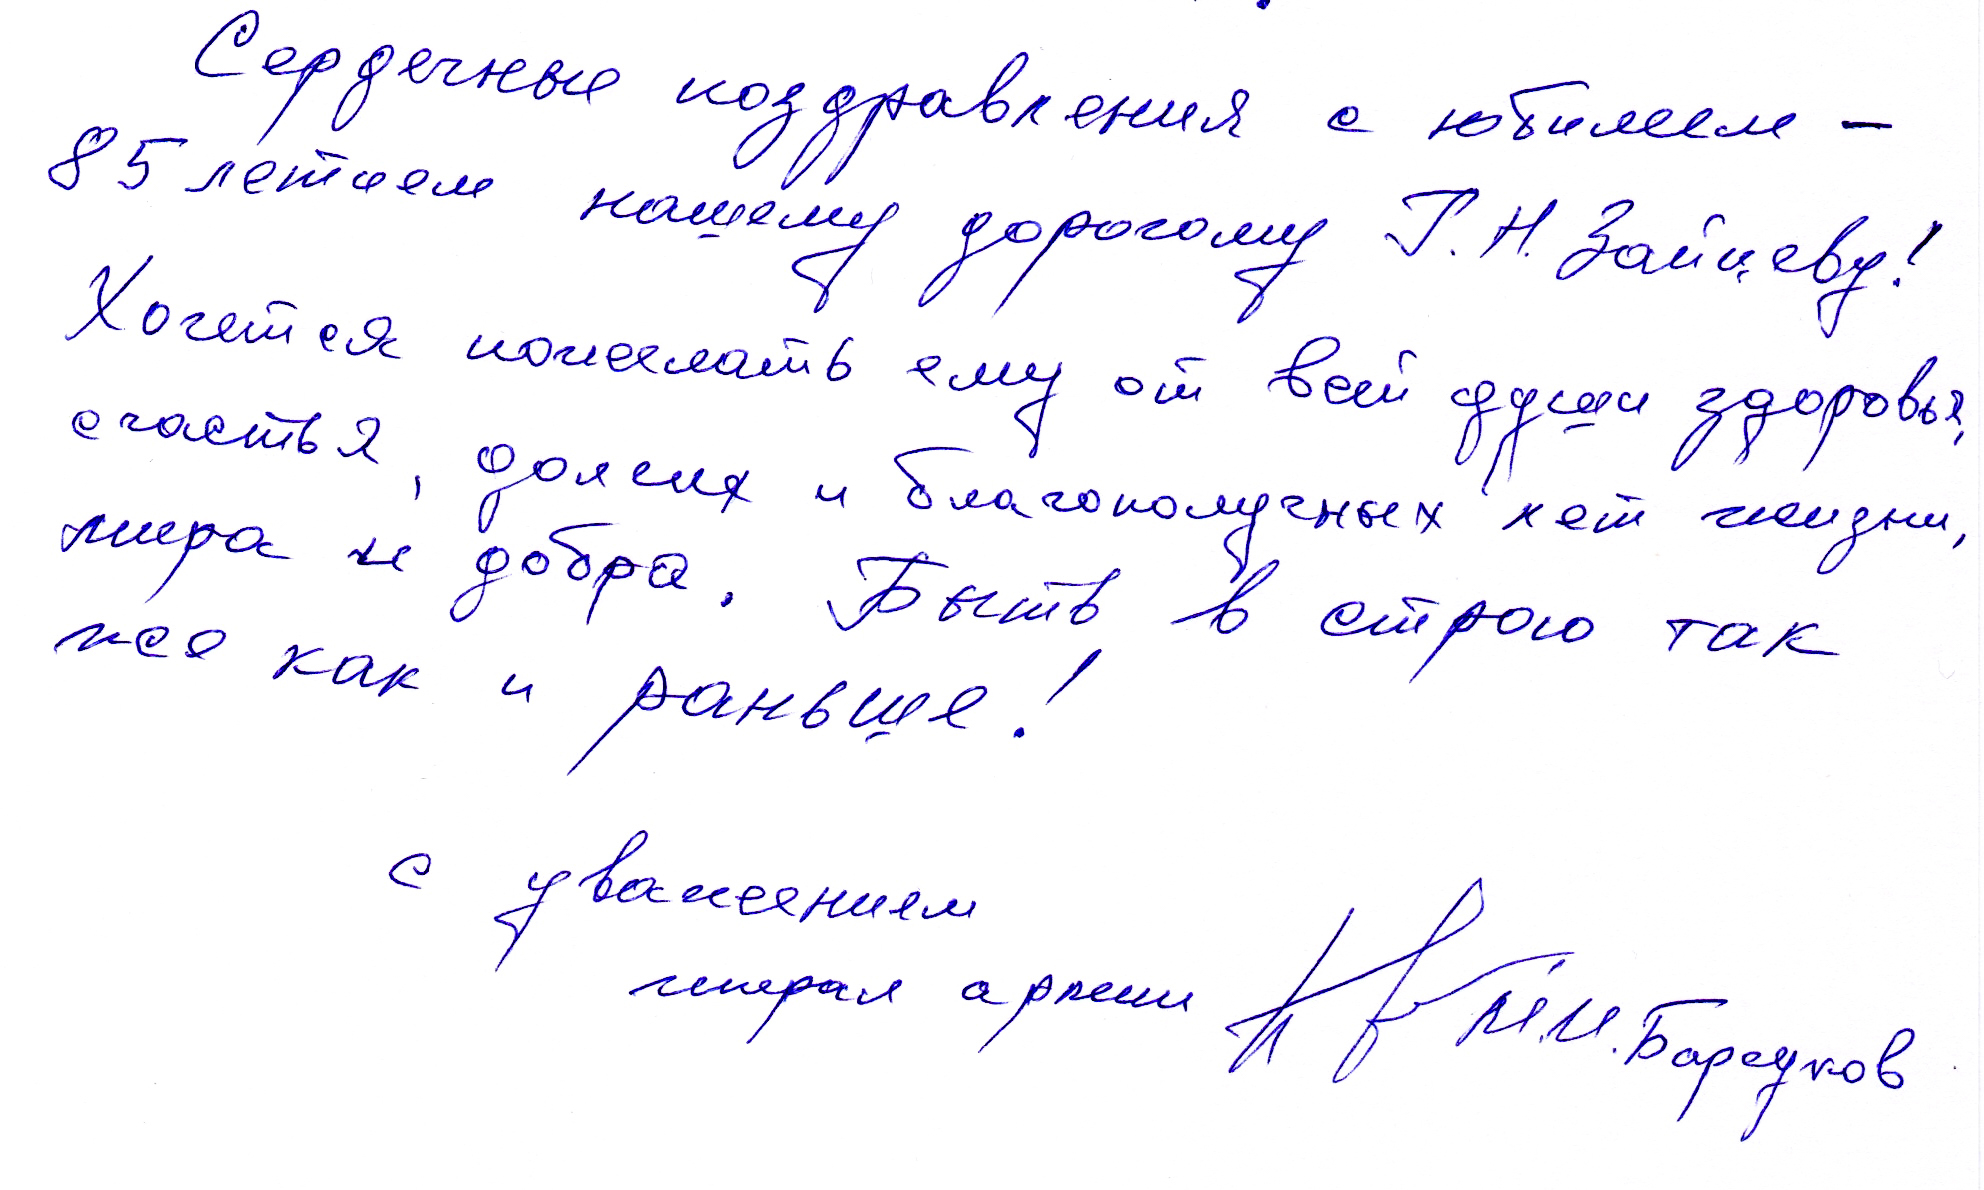 Сердечные поздравления с юбилеем –
85 летием нашему дорогому Г. Н. Зайцеву!
Хочется пожелать ему от всей души здоровья,
счастья, долгих и благополучных лет жизни,
мира и добра. Быть в строю так
же как и раньше!
С уважением
генерал армии М.И. Барсуков